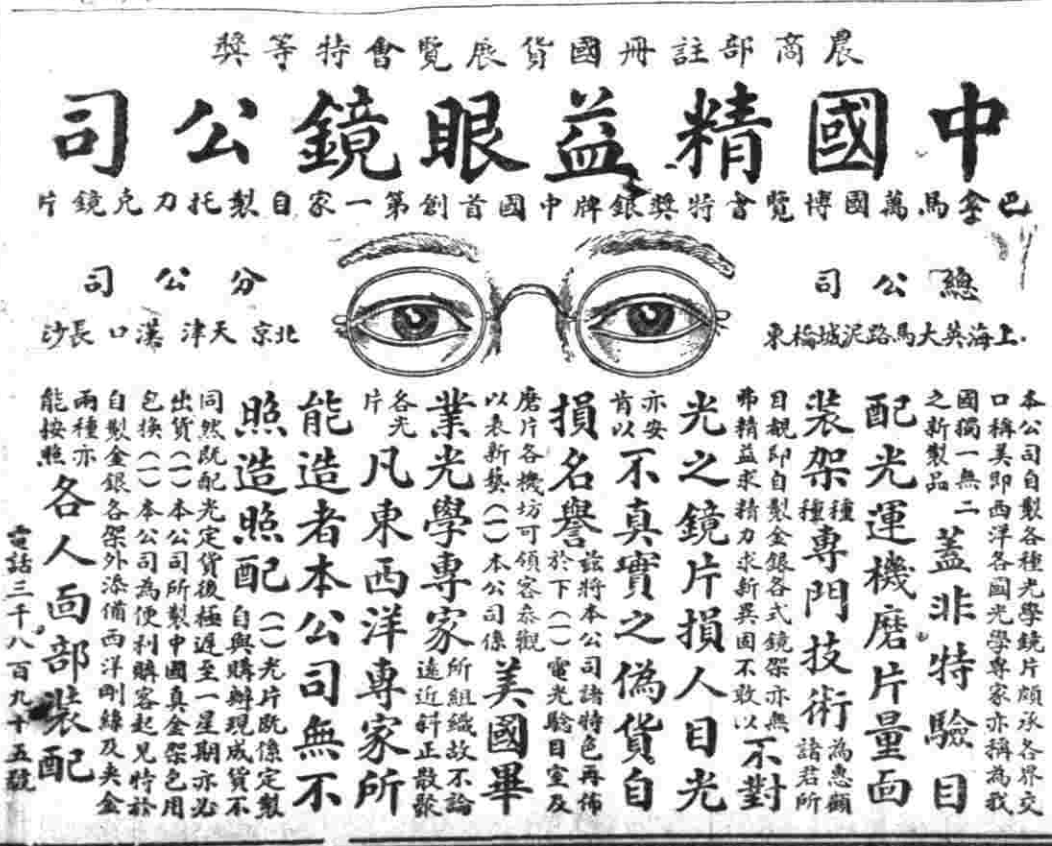 農商部註冊國貨展覽會特等獎
中國精益眼鏡公司
巴拿馬萬國博覽會特獎銀牌中國首創第一家自製托力克鏡片
總公司
上海英大馬路泥城橋東
分公司
北京 天津 漢口 長沙
本公司自製各種光學鏡片頗承各界交
口稱美即西洋各國光學專家亦稱為我
國獨一無二
之新製品
蓋非特驗目
配光運機磨片量面
裝架
種
種
專門技術
為惠顧
諸君所
目覩即自製金銀各式鏡架亦無
弗精益求精力求新異固不敢以
不對
光之鏡片損人目光
亦安
肯以
不真實之偽貨自
損名譽
茲將本公司諸特色再佈
於下(一)電光驗目室及
磨片各機坊可領客叅觀
以表新藝(一)本公司係
美國畢
業光學專家
所組織故不論
遠近斜正散聚
各光
片
凡東西洋專家所
能造者本公司無不
照造照配
(一)光片既係定製
自與購辦現成貨不
同然既配光定貨後極遲至一星期亦必
出貨(一)本公司所製中國真金架包用
包換(一)本公司為便利購客起見特於
自製金銀各架外添備西洋剛絲及夾金
兩種亦
能按照
各人面部裝配
電話三千八百九十五號